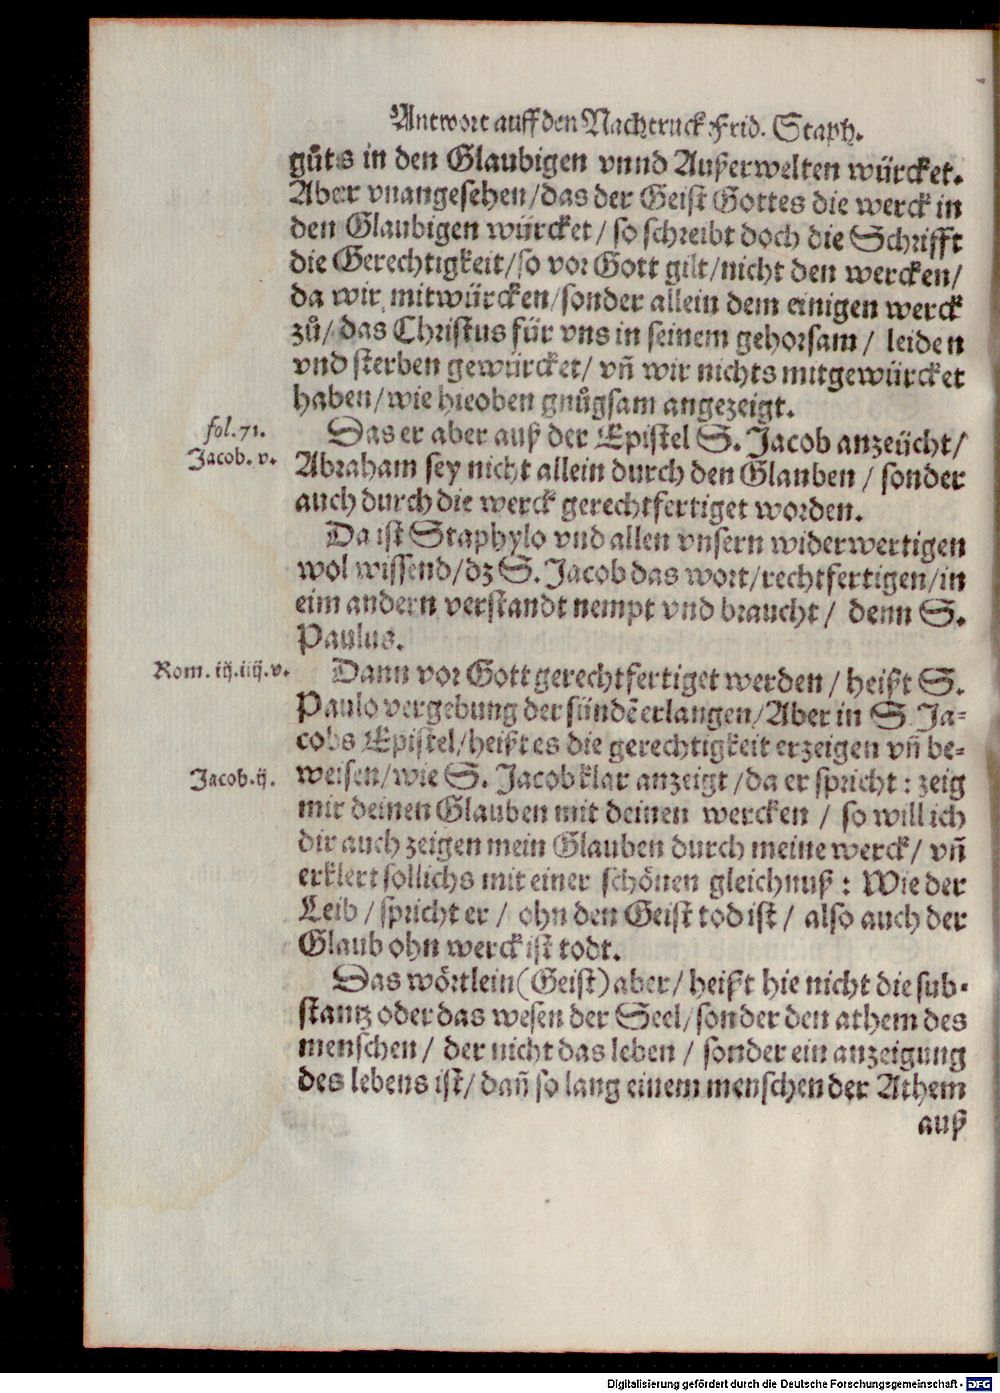 Antwort auff den Nachtruck Frid. Staph.
gůts in den Glaubigen vnnd Außerwelten würcket.
Aber vnangesehen/das der Geist Gottes die werck in
den Glaubigen würcket/ so schreibt doch die Schrifft
die Gerechtigkeit/so vor Gott gilt/nicht den wercken/
da wir mitwürcken/sonder allein dem einigen werck
zů/ das Christus für vns in seinem gehorsam/ leiden
vnd sterben gewürcket/ vñ wir nichts mitgewürcket
haben/wie hieoben gnůgsam angezeigt.
fol.71.
Das er aber auß der Epistel S. Jacob anzeücht/
Jacob. v.
Abraham sey nicht allein durch den Glauben / sonder
auch durch die werck gerechtfertiget worden.
Da ist Staphylo vnd allen vnsern widerwertigen
wol wissend/dz S. Jacob das wort/rechtfertigen/in
eim andern verstandt nempt vnd braucht/ denn S.
Paulus.
Rom. iij.iiij.v.
Dann vor Gott gerechtfertiget werden / heißt S.
Paulo vergebung der sündẽ erlangen/Aber in S. Ja-
cobs Epistel/heißt es die gerechtigkeit erzeigen vñ be-
Jacob.ij.
weisen/wie S. Jacob klar anzeigt /da er spricht: zeig
mir deinen Glauben mit deinen wercken / so will ich
dir auch zeigen mein Glauben durch meine werck/ vñ
erklert sollichs mit einer schönen gleichnuß: Wie der
Leib / spricht er / ohn den Geist tod ist / also auch der
Glaub ohn werck ist todt.
Das wörtlein (Geist) aber/ heißt hie nicht die sub-
stantz oder das wesen der Seel/sonder den athem des
menschen/ der nicht das leben / sonder ein anzeigung
des lebens ist/ dañ so lang einem menschen der Athem
auß
Digitalisierung gefördert durch die Deutsche Forschungsgemeinschaft - DFG